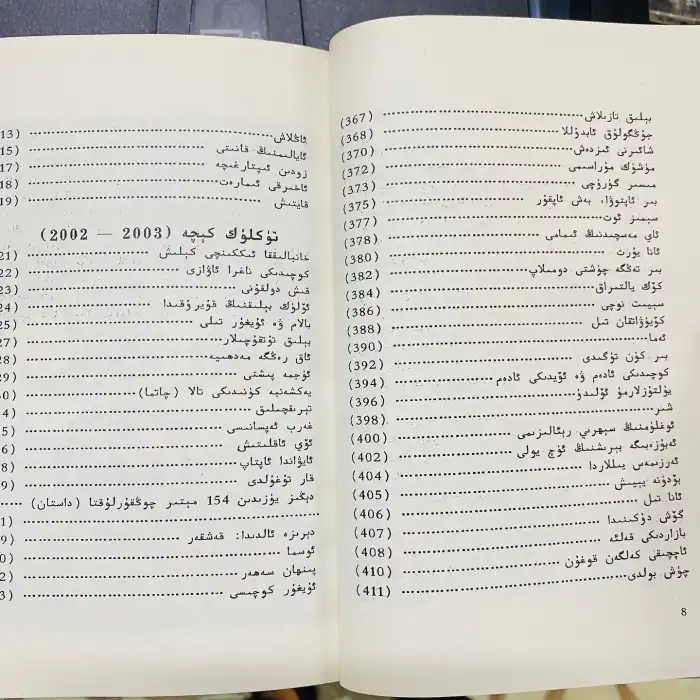 بېلىق تازىلاش (367)
جۇڭگولۇق ئابدۇللا (368)
شائىرنى ئىزدەش (370)
مۈشۈك مۇراسىمى (372)
مىسىر گۈرۈچى (373)
بىر ئاپتوۋا، بەش ئاپقۇر (375)
سېمىز ئوت (377)
ئاي مەسچىدنىڭ ئىمامى (378)
ئانا يۇرت (380)
بىر تەڭگە چۈشتى دومىلاپ (382)
كۆك يالتىراق (384)
سېيىت نوچى (386)
كۆيۈۋاتقان تىل (388)
ئەما (390)
بىر كۈن تۈگىدى (392)
كوچىدىكى ئادەم ۋە ئۆيدىكى ئادەم (394)
يۇلتۇزلارمۇ ئۆلىدۇ (396)
شىر (398)
ئوغلۇمنىڭ سېھرىي رېئالىزىمى (400)
ئەبۇزەيگە بېرىشنىڭ ئۈچ يولى (402)
ئەرزىمەس يىللاردا (404)
بۆدۈنە يېيىش (405)
ئانا تىل (406)
گۆش دۇكىنىدا (407)
بازاردىكى قەلئە (408)
ئاچچىقى كەلگەن قوغۇن (410)
چۈش بولدى (411)
8
ئاڭلاش 13)
ئايالىمنىڭ قانىتى 15)
زودىن ئىپتارغىچە 17)
ئاخىرقى ئىمارەت 18)
قايتىش 19)
تۈكلۈك كېچە (2003 — 2002)
خانبالىققا ئىككىنچى كېلىش 21)
كوچىدىكى ناغرا ئاۋازى 22)
قىش دولقۇنى 23)
ئۆلۈك بېلىقنىڭ قۇيرۇقىدا 24)
بالام ۋە ئۇيغۇر تىلى 25)
بېلىق تۇتقۇچىلار 27)
ئاق رەڭگە مەدھىيە 28)
ئۈجمە پىشتى 29)
يەكشەنبە كۈنىدىكى تالا (چاتما) 0)
تېرىقچىلىق 4)
غەرب ئەپسانىسى 5)
ئۆي ئاقلىتىش 6)
ئايۋاندا ئاپتاپ 8)
قار تۇغۇلدى 9)
دېڭىز يۈزىدىن 154 مېتىر چوڭقۇرلۇقتا (داستان)
1)
دېرىزە ئالدىدا: قەشقەر 9)
ئوسما 0)
پىنھان سەھەر 2)
ئۇيغۇر كوچىسى 3)